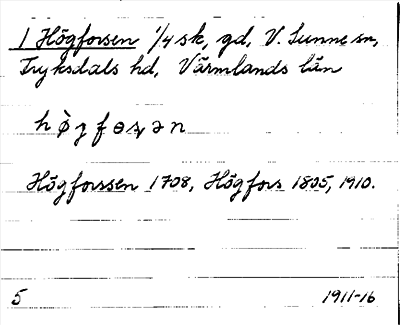 1 Högforsen 1/4 sk, gd, V. Sunne sn,
Fryksdals hd, Värmlands län
Högforssen 1708, Högfors 1805, 1910.
5 1911-16